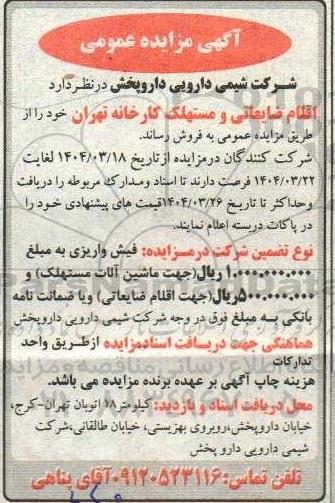 آگهی مزایده عمومی
شرکت شیمی دارویی داروپخش درنظردارد
اقلام ضایعاتی و مستهلک کارخانه تهران خود را از
طریق مزایده عمومی به فروش رساند.
شرکت کنندگان درمزایده ازتاریخ ۱۴۰۴/۰۳/۱۸ لغایت
۱۴۰۴/۰۳/۲۲ فرصت دارند تا اسناد ومدارک مربوطه را دریافت
وحداکثر تا تاریخ ۱۴۰۴/۰۳/۲۶قیمت های پیشنهادی خود را
در پاکات دربسته اعلام نمایند.
نوع تضمین شرکت درمزایده: فیش واریزی به مبلغ
۱.۰۰۰.۰۰۰.۰۰۰ ریال(جهت ماشین آلات مستهلک) و
۵۰۰.۰۰۰.۰۰۰ریال(جهت اقلام ضایعاتی) ویا ضمانت نامه
بانکی به مبلغ فوق در وجه شرکت شیمی دارویی داروپخش
هماهنگی جهت دریافت اسنادمزایده ازطریق واحد
تدارکات
هزینه چاپ آگهی بر عهده برنده مزایده می باشد.
محل دریافت اسناد و بازدید: کیلومتر۱۸ اتوبان تهران-کرج،
خیابان داروپخش،روبروی بهزیستی، خیابان طالقانی،شرکت
شیمی دارویی دارو پخش
تلفن تماس:۰۹۱۲۰۵۲۳۱۱۶آقای پناهی